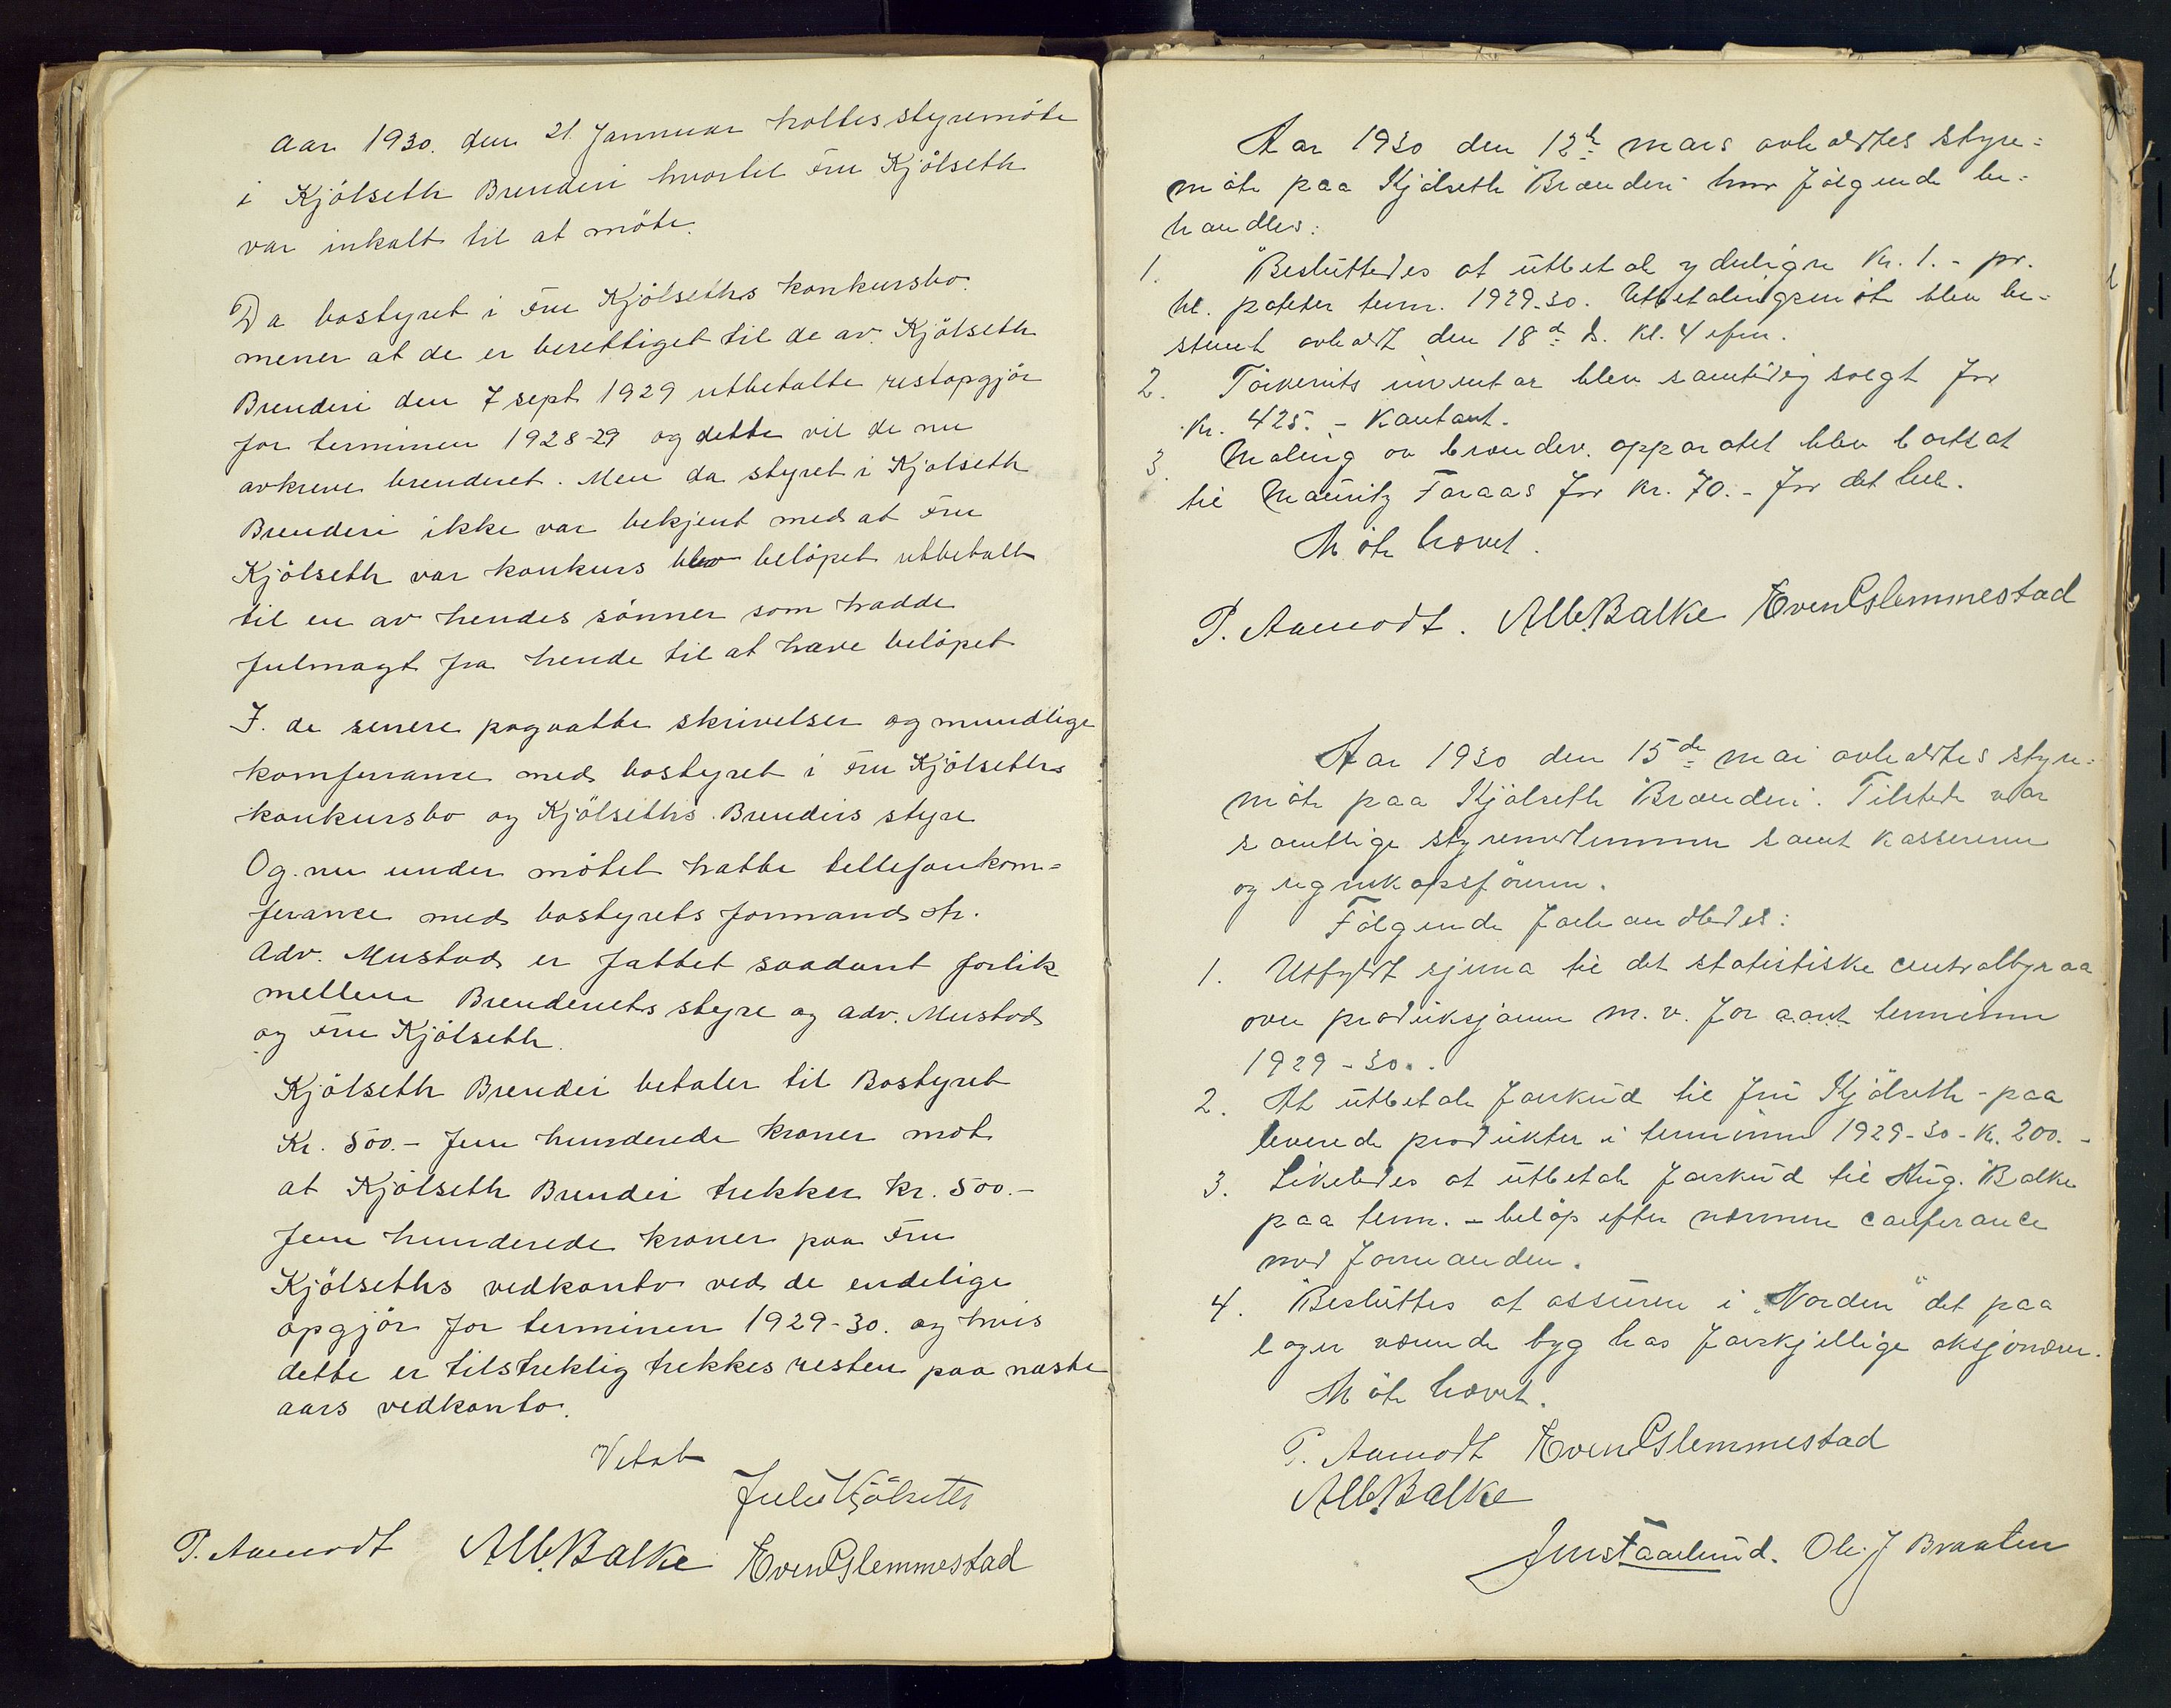 Aar 1930. den 21. Jannuar holtes styremöte
i Kjölseth Brenderi hvortil Fru Kjölseth
var inkalt til at möte.
Da bostyret i Fru Kjölseths konkursbo.
mener at de er berettiget til de av. Kjölseth
Brenderi den 7 sept 1929 utbetalte restopgjör
for terminen 1928-29 og dette vil de nu
avkreve brenderiet. Men da styret i Kjölseth
Brenderi ikke var bekjent med at Fru
Kjölseth var konkurs blev belöpet utbetalt
til en av hendes sönner som hadde
fulmagt fra hende til at hæve belöpet
I. de senere pogaatte skrivelser og mundlige
komferrance med bostyret i Fru Kjölseths
konkursbo og Kjölseths. Brenderis styre
Og. nu under mötet hatte tellefonkom=
ferance med bostyrets formand hr.
Adv. Mustad er fattet saadant forlik
mellem Brenderiets styre og adv. Mustad
og Fru Kjölseth.
Kjölseth Brenderi betaler til Bostyret
Kr. 500.- Fem hunderede kroner mot
at Kjölseth Brenderi trekker kr. 500.-
fem hunderede kroner paa Fru
Kjölseths vedkonto ved de endelige
opgjör for terminen 1929-30. og hvis
dette er tilstreklig trekkes resten paa næste
aars vedkonto.
Vetat
Julie Kjölseth
P. Aamodt Alb. Balke Even Glemmestad
Aar 1930 den 12te mars avholdtes styre=
möte paa Kjölseth Brænderi hvor fölgende be=
handles:
1. Besluttedes at utbetale yderligre Kr. 1.- pr.
hl. poteter term. 1929-30. Utbetalingsmöte blev be=
stemt avholdt den 18de ds. Kl. 4 efm.
2. Törkeriets inventar blev samtidig solgt for
Kr. 425.- Kontant.
3. Maling av brænderi. apparatet blev bortsat
til Mauritz Faraas for Kr. 70.- for det hele.
Möte hævet.
P. Aamodt. Alb. Balke Even Glemmestad
Aar 1930 den 15de mai avholdtes styre=
möte paa Kjölseth Brænderi. Tilstede var
samtlige styremedlemmer samt kassereren
og regnskapsföreren.
Fölgende forhandledes:
1. Utfyldt sjema til det statistiske centralbyraa
over produksjonen m.v. for aaret terminen
1929-30..
2. At utbetale forskud til fru Kjölseth - paa
leverede produkter i terminen 1929-30 - Kr. 200.-
3. Likeledes at utbetale forskud til Aug. Balke
paa term. - belöp efter nærmere conferance
med formanden.
4. Besluttes at assurere i "Norden" det paa
lager værende byg hos forskjellige aksjonærer.
Möte hævet.
P. Aamodt Even Glemmestad
Alb. Balke
Jens Faarlund. Ole J Braaten